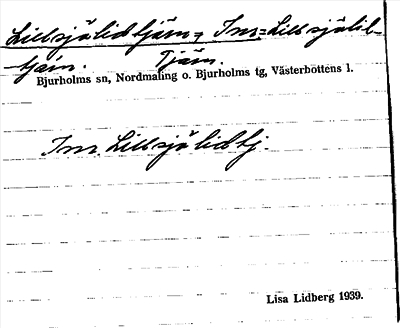 Lillsjölidtjärn, Inre Lillsjölid-
tjärn. Tjärn.
Bjurholms sn, Nordmaling o. Bjurholms tg, Västerbottens l.
Inr. Lillsjölidtj.
Lisa Lidberg 1939.